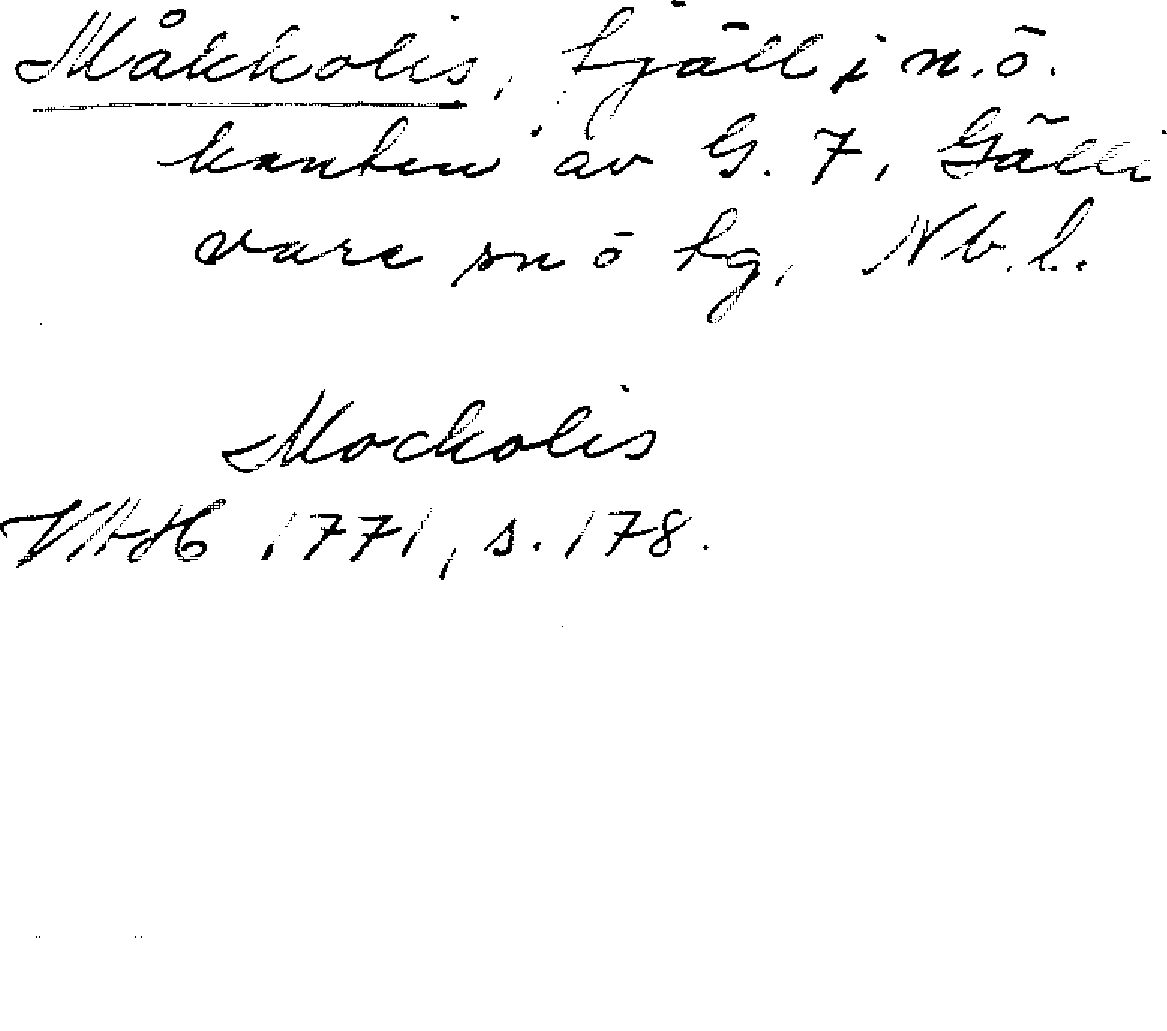 Måkkolis, fjäll i n.ö.
kanten av G. 7, Gälli
vare snö tg, Nb. l.
Mockolis
VAH 1771, s. 178.